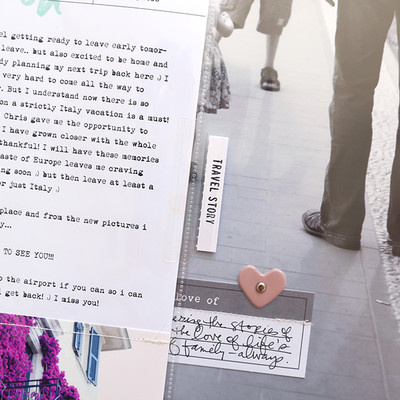 el getting ready to leave early tomor-
leave.. but also excited to be home and
dy planning my next trip back here :) I
very hard to come all the way to
. But I understand now there is so
on a strictly Italy vacation is a must!
Chris gave me the opportunity to
I have grown closer with the whole
thankful! I will have these memories
aste of Europe leaves me craving
ng soon :) but then leave at least a
r just Italy :)
place and from the new pictures i
y...
TO SEE YOU!!!
o the airport if you can so i can
get back! :) I miss you!
TRAVEL STORY
love of
the stories of
the love of life's
family - always.